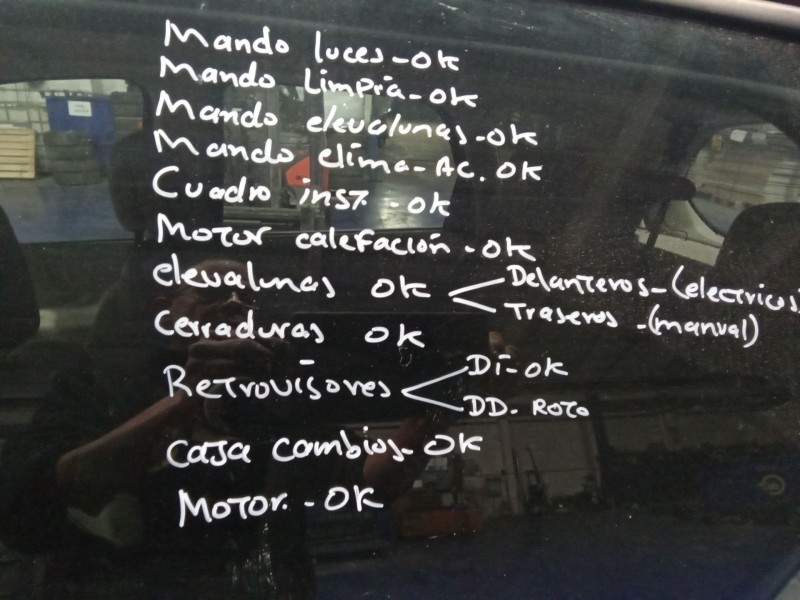 Mando luces-OK
Mando Limpia-OK
Mando elevalunas-OK
Mando clima-AC. OK
Cuadro inst. -OK
Motor calefación-OK
elevalunas OK Delanteros-(electricos)
Traseros-(manual)
Cerraduras OK
Retrovisores DI-OK
DD. Roto
Caja cambios-OK
Motor.-OK